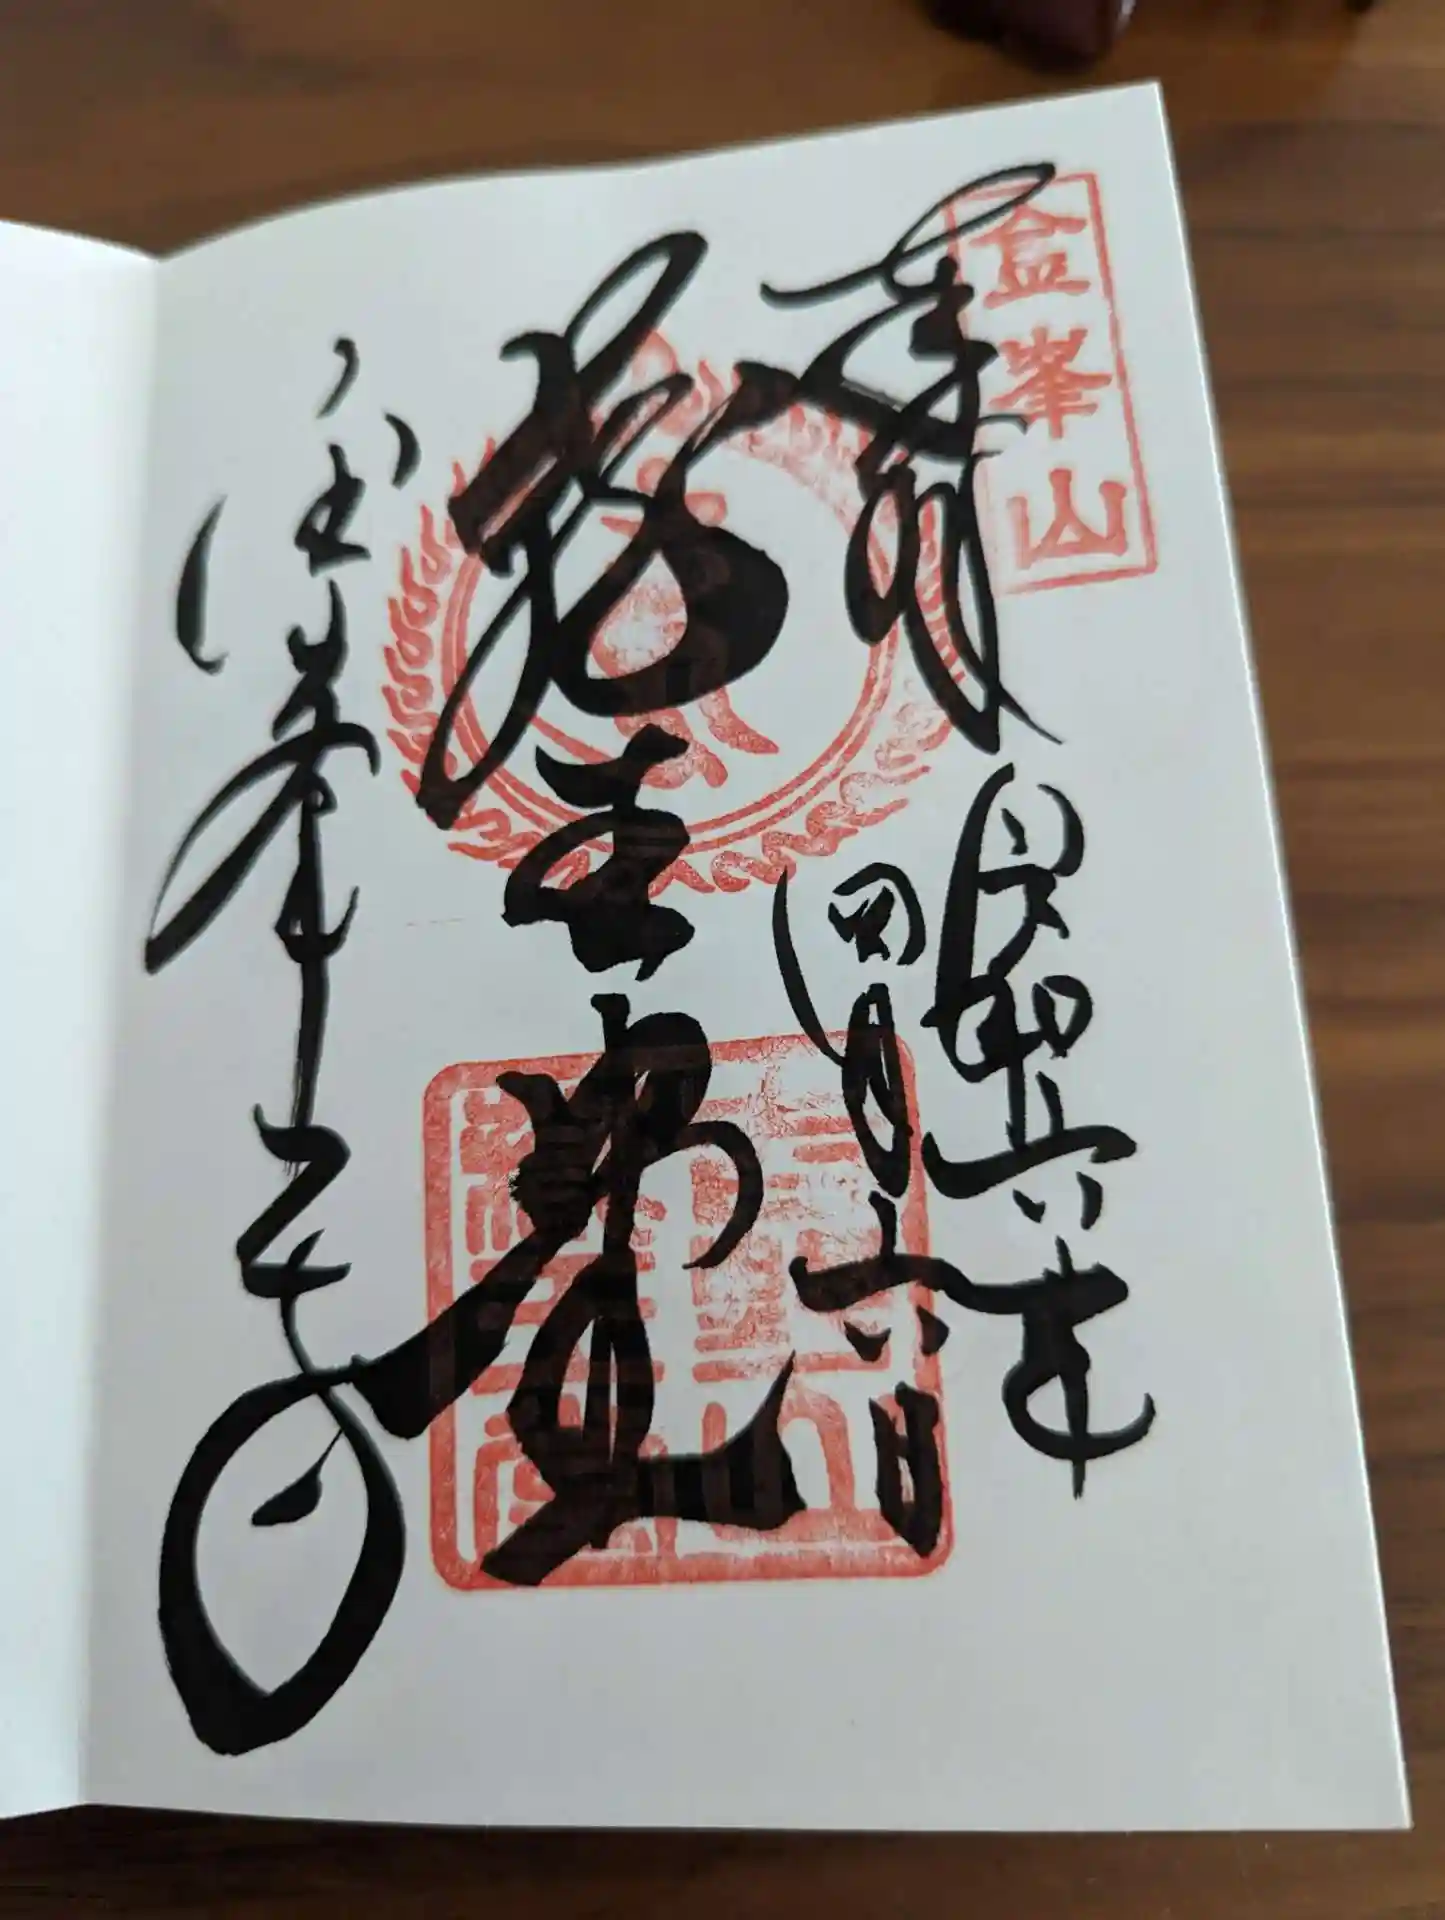 金峯山
奉拝
令和六年
四月六日
蔵王堂
金峯山寺